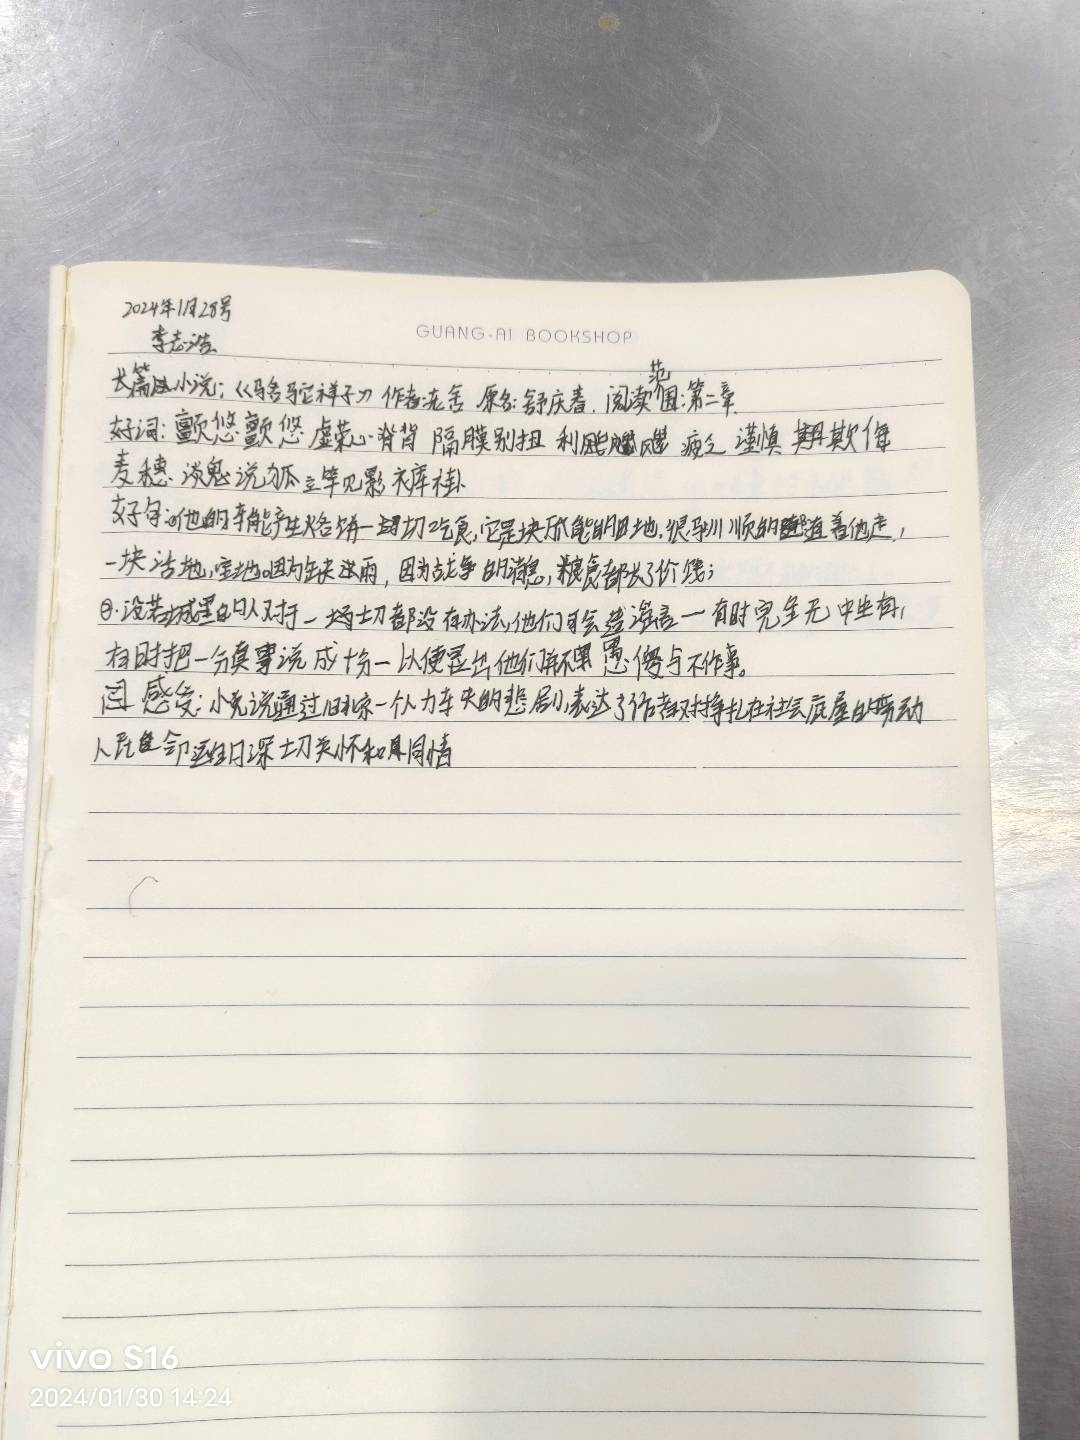 2024年1月28号
李志浩
GUANG·AI BOOKSHOP
长篇小说:《骆驼祥子》 作者:老舍 原名:舒庆春. 阅读范围:第二章
好词: 颤悠颤悠 虚荣心 脊背 隔膜 别扭 利飕飕 疲乏 谨慎 期欺侮
麦穗 谈鬼说狐 立竿见影 裤褂
好句:①他的车能产生烙饼一切吃食,它是块万能的田地.很驯顺的随着他走,
一块活地,宝地。因为缺雨,因为战争的消息,粮食都长了价钱;
②.没若城里的人对于一场切都没有办法,他们可会造谣言一有时完全无中生有,
有时把一分真事说成十分一以便显出他们并不愚傻与不作事。
感受:小说通过旧北京一个人力车夫的悲剧,表达了作者对挣扎在社会底层的劳动
人民命运的深切关怀和同情
vivo S16
2024/01/30 14:24